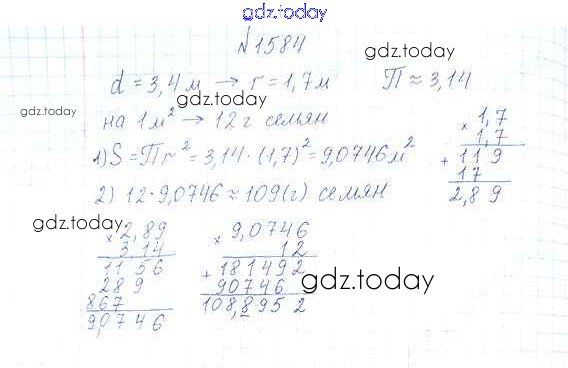 gdz.today
№1584
gdz.today
d = 3,4 м → r = 1,7 м П ≈ 3,14
gdz.today
gdz.today
на 1 м² → 12 г семян
1) S = Пr² = 3,14 · (1,7)² = 9,0746 м²
2) 12 · 9,0746 ≈ 109 (г) семян
× 1,7
1,7
+ 119
17
2,89
gdz.today
× 2,89
3,14
1156
289
867
9,0746
× 9,0746
12
+ 181492
90746
108,8952
gdz.today